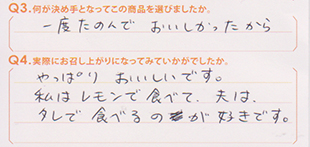 Q3.何が決め手となってこの商品を選びましたか。
一度たのんで おいしかったから
Q4.実際にお召し上がりになってみていかがでしたか。
やっぱり おいしいです。
私は レモンで 食べて. 夫は.
タレで 食べるのが好きです。